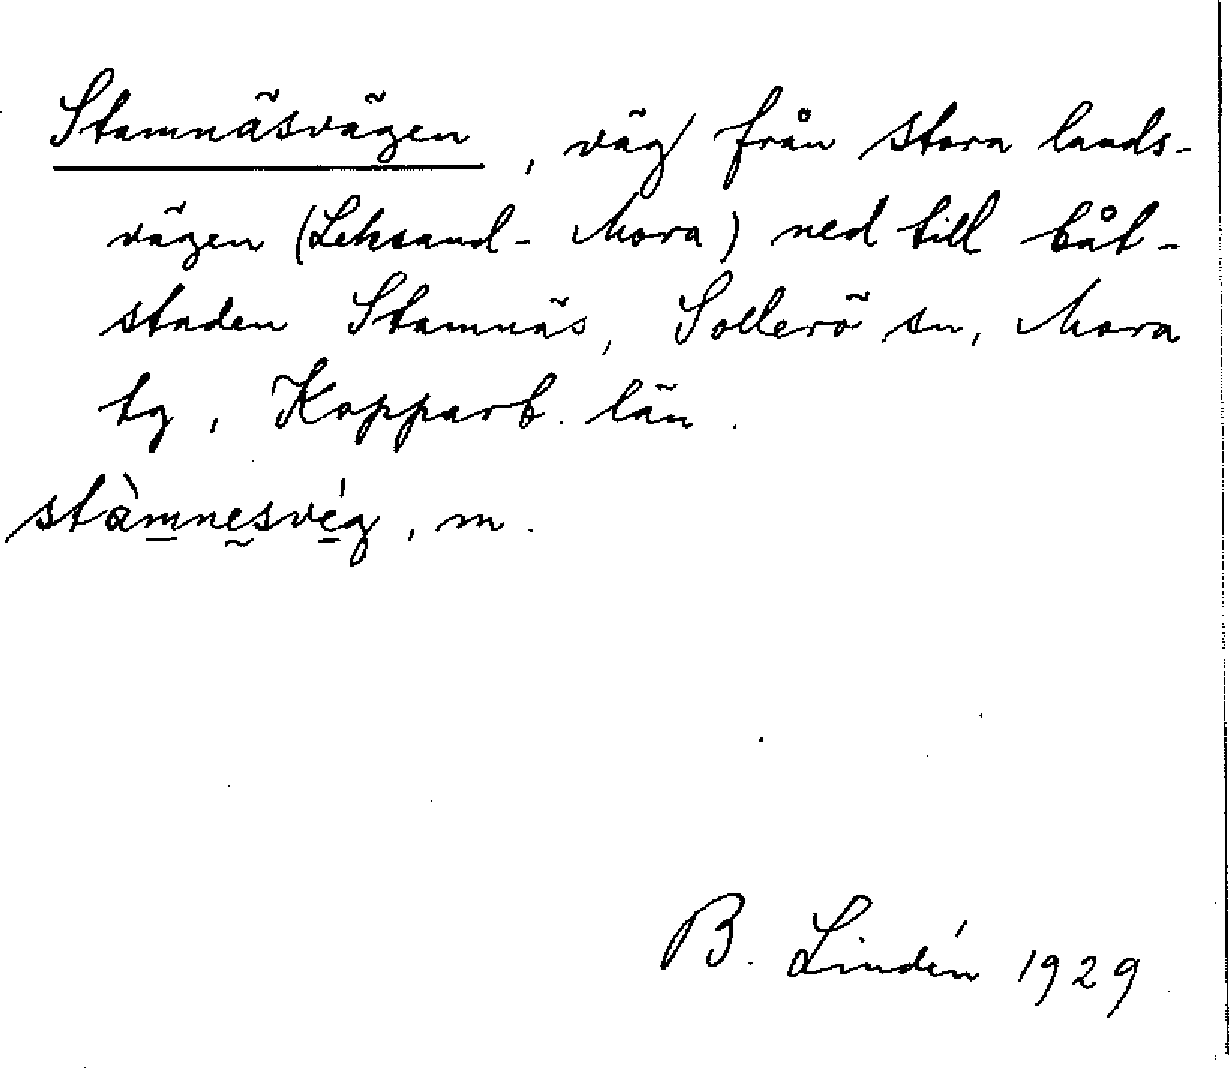 Stamnäsvägen, väg från stora lands-
vägen (Leksand - Mora) ned till båt-
staden Stamnäs, Sollerö sn, Mora
tg, Kopparb. län.
stàmnesvég, m.
B. Lindén 1929